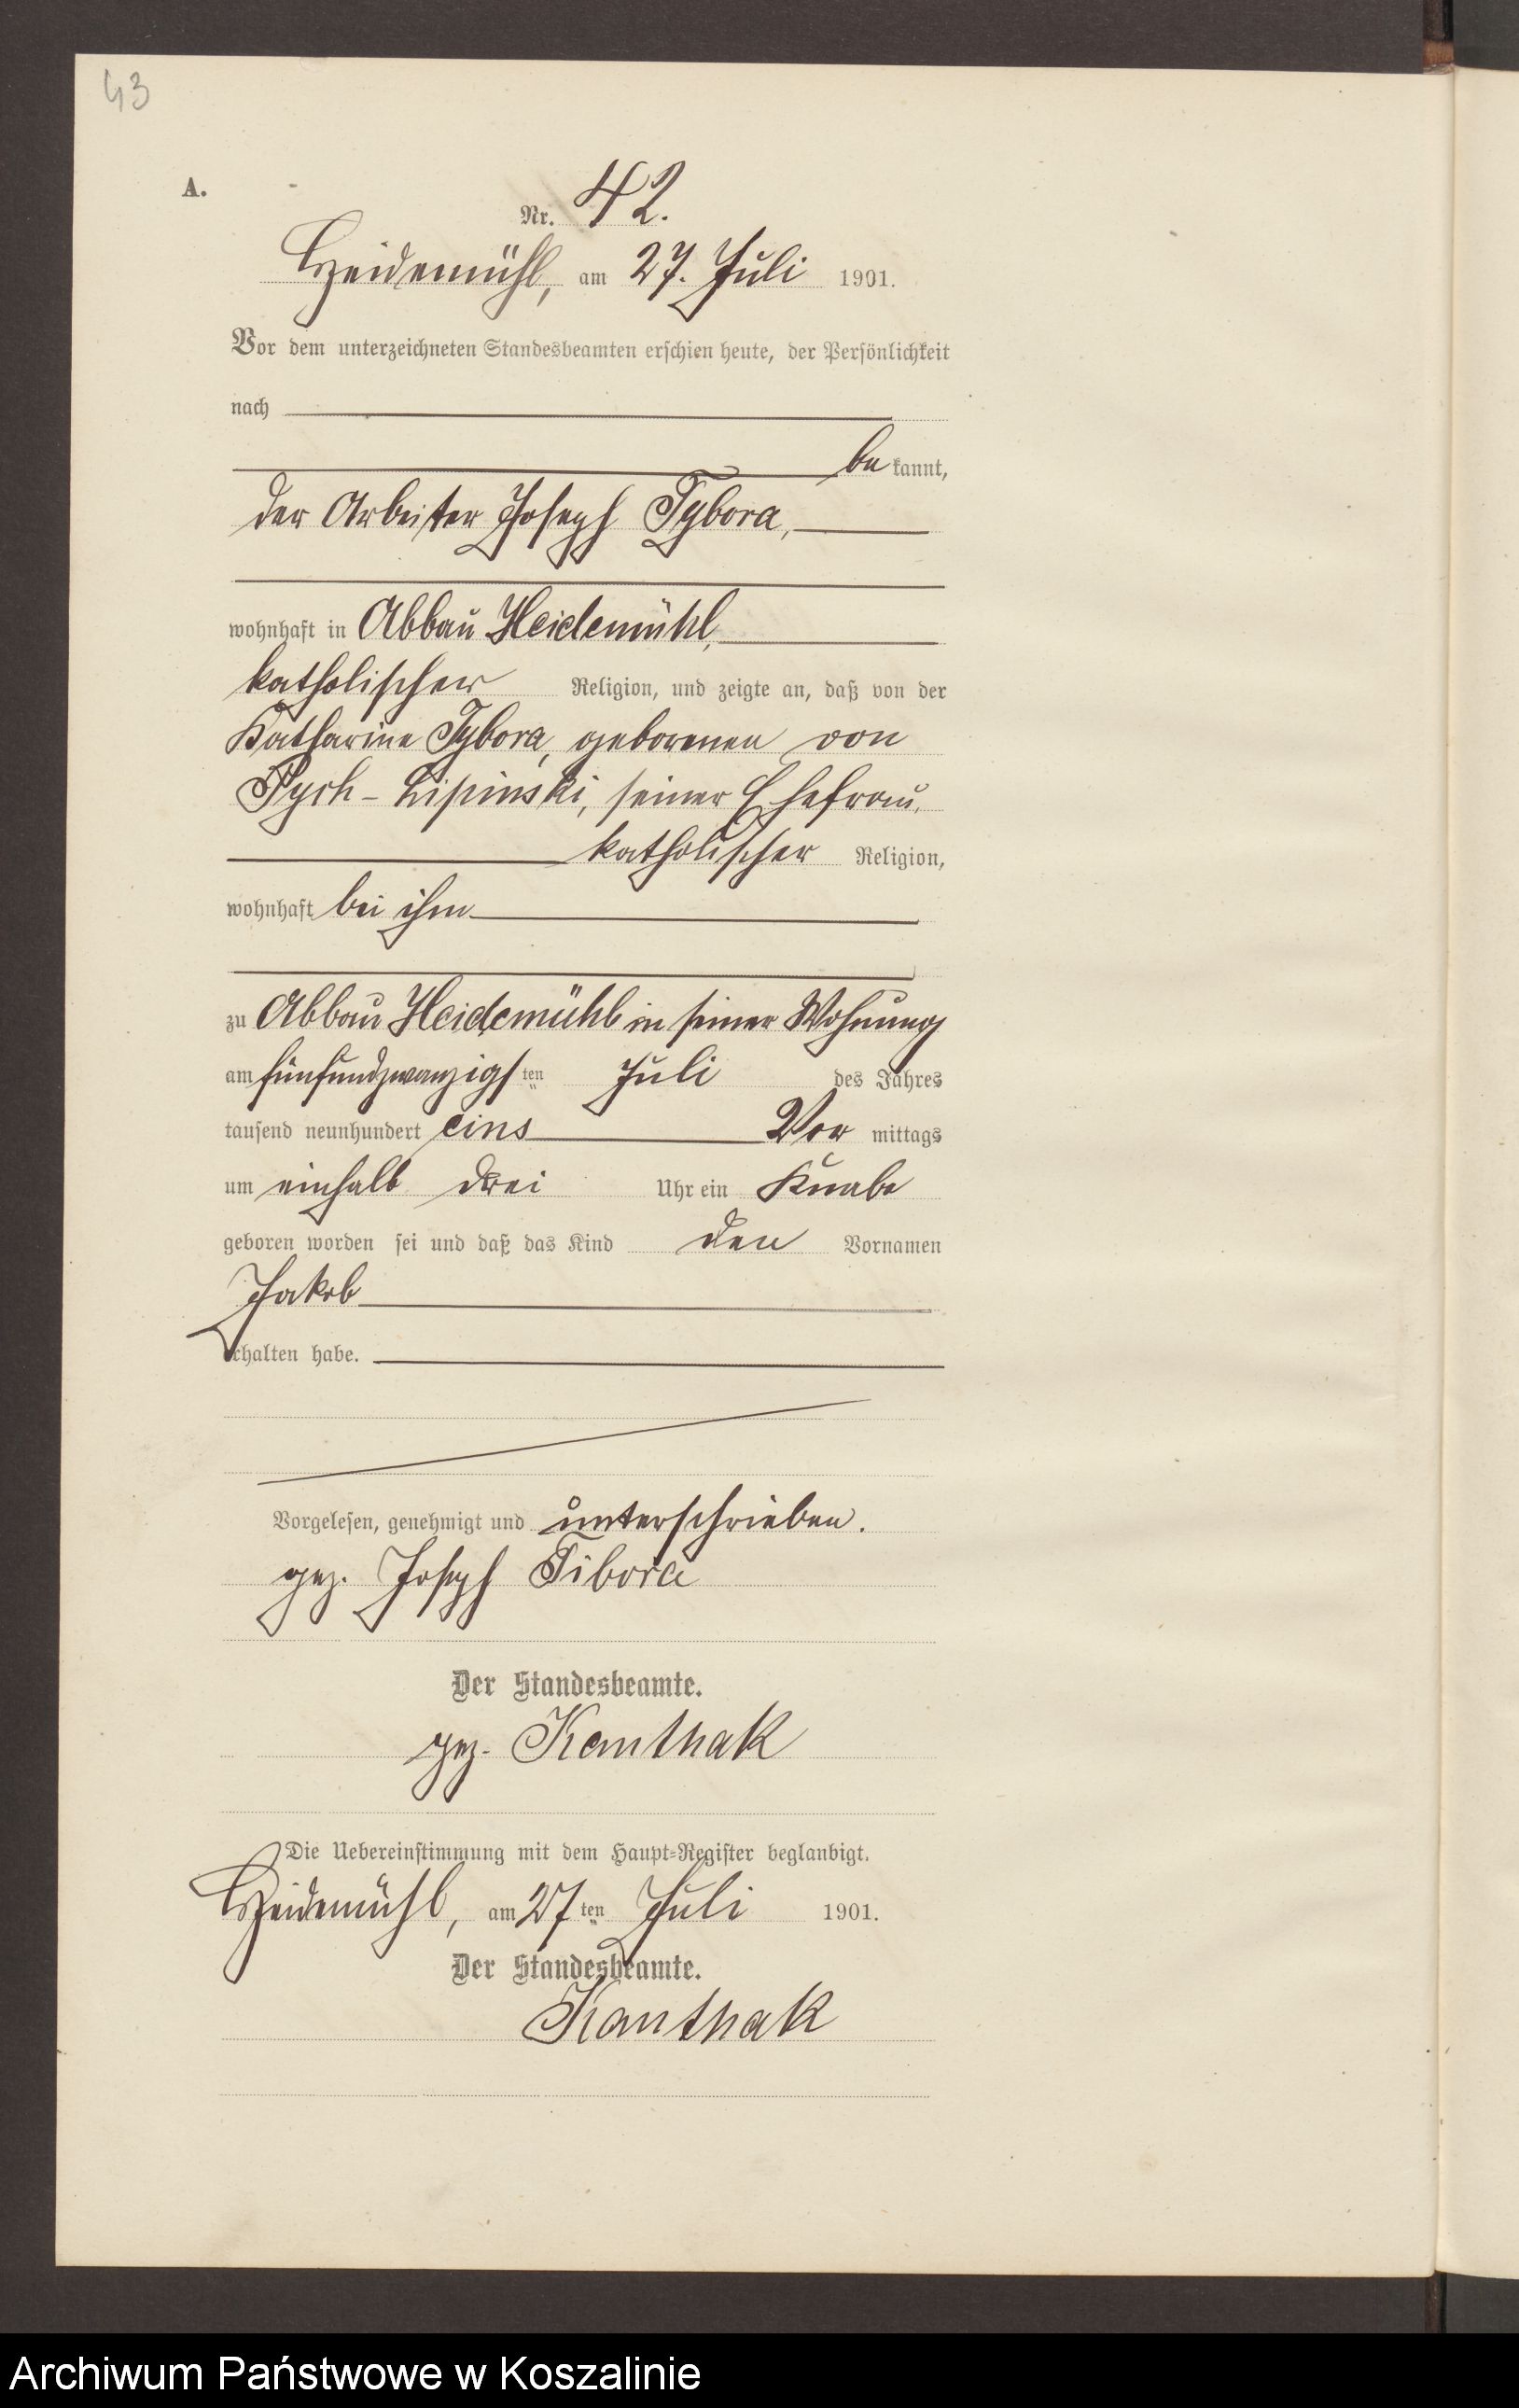 43
A.
Nr. 42.
Heidemühl, am 27. Juli 1901.
Vor dem unterzeichneten Standesbeamten erschien heute, der Persönlichkeit
nach
be kannt,
der Arbeiter Joseph Tybora,
wohnhaft in Abbau Heidemühl,
katholischer Religion, und zeigte an, daß von der
Katharine Tybora, geborenen von
Pych-Lipinski, seiner Ehefrau,
katholischer Religion,
wohnhaft bei ihm
zu Abbau Heidemühl in seiner Wohnung
am fünfundzwanzigsten Juli des Jahres
tausend neunhundert eins Vor mittags
um einhalb drei Uhr ein Knabe
geboren worden sei und daß das Kind den Vornamen
Jakob
erhalten habe.
Vorgelesen, genehmigt und unterschrieben.
gez. Joseph Tibora
Der Standesbeamte.
gez. Kanthak
Die Uebereinstimmung mit dem Haupt-Register beglaubigt.
Heidemühl, am 27ten Juli 1901.
Der Standesbeamte.
Kanthak
Archiwum Państwowe w Koszalinie